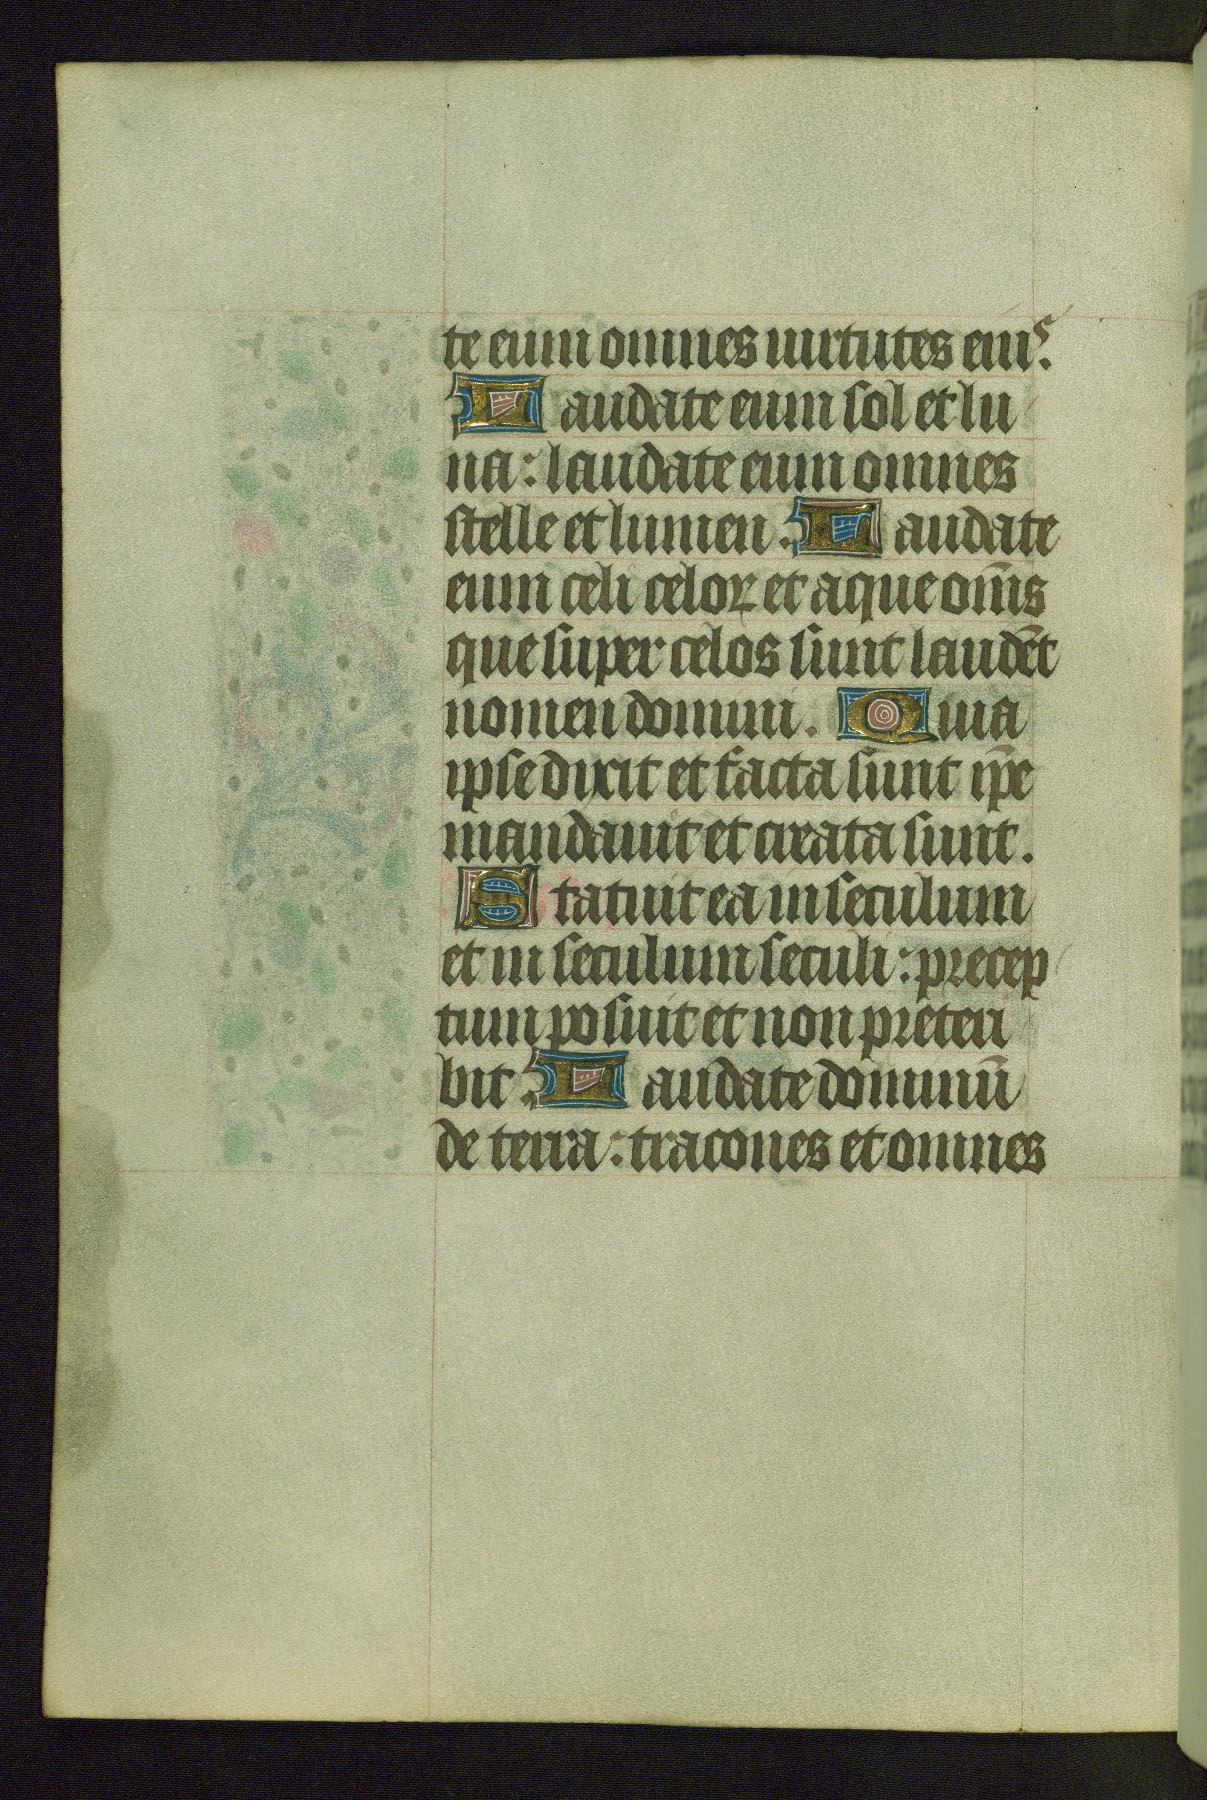 te eum omnes uirtutes eius.
Laudate eum sol et lu
na: laudate eum omnes
stelle et lumen. Laudate
eum celi celoꝝ et aque om̄s
que super celos sunt laudēt
nomen domini. Quia
ipse dixit et facta sunt ip̄e
mandauit et creata sunt.
Statuit ea in seculum
et in seculum seculi: precep
tum posuit et non preteri
bit. Laudate dominū
de terra: tracones et omnes